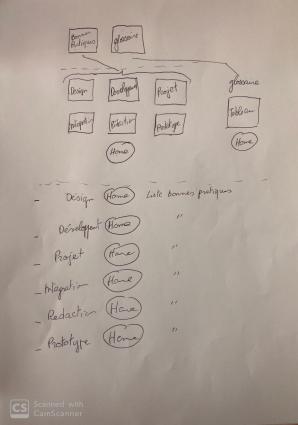 Bonnes
Pratiques
glossaire
Design
Développent
Projet
glossaire
Intégration
Rédaction
Prototype
Tableau
Home
Home
- Design Home Liste bonnes pratiques
- Développent Home "
- Projet Home "
- Intégration Home "
- Redaction Home "
- Prototype Home "
CS Scanned with
CamScanner